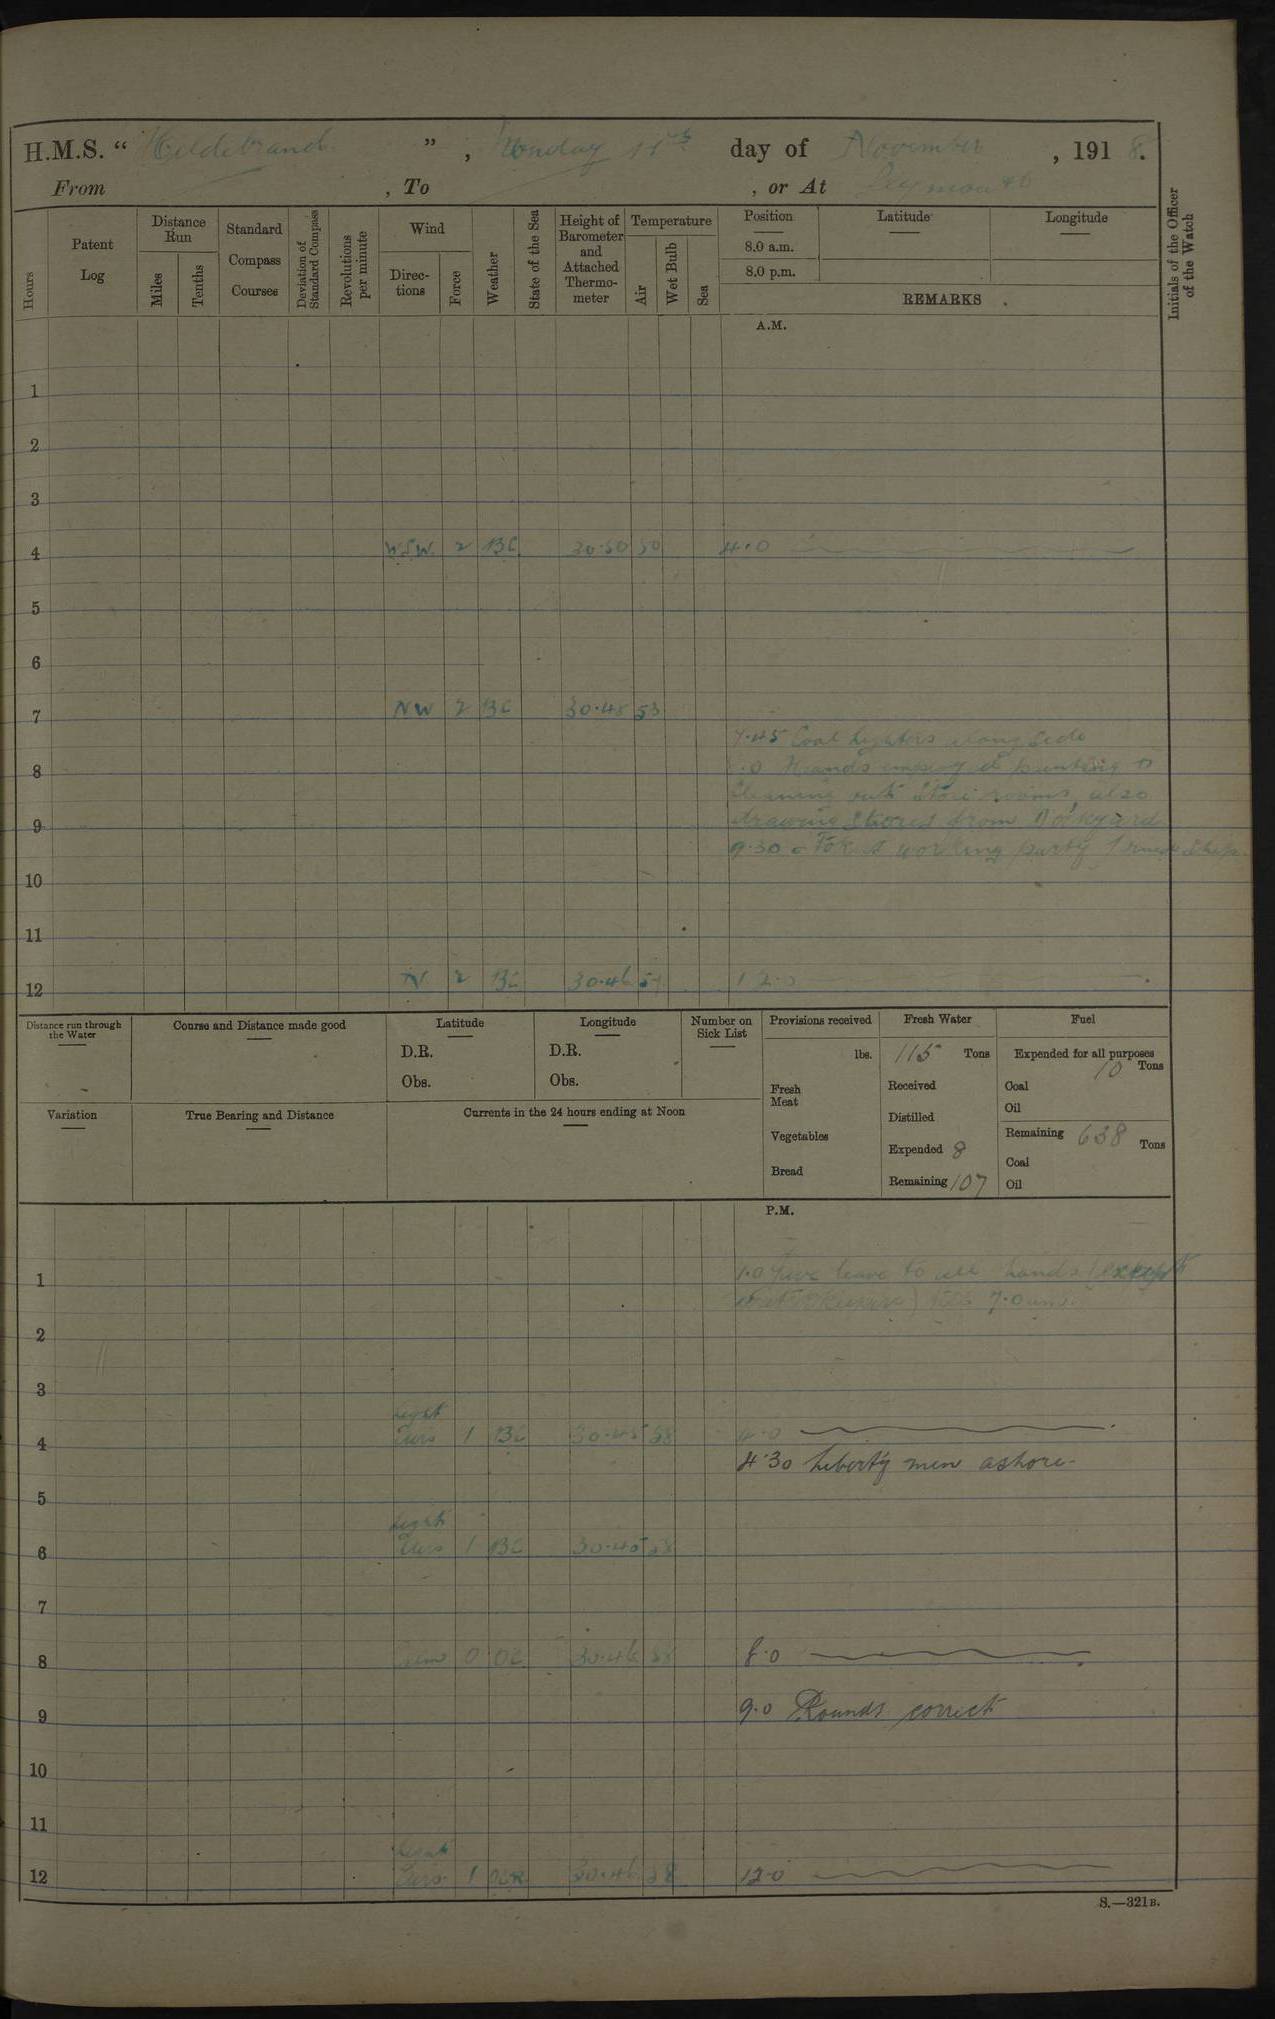 H.M.S. “ Hildebrand ”, Monday 11th day of November, 1918.
From , To , or At Plymouth
Hours
Patent Log
Distance Run
Miles
Tenths
Standard Compass Courses
Deviation of Standard Compass
Revolutions per minute
Wind
Directions
Force
Weather
State of the Sea
Height of Barometer and Attached Thermometer
Temperature
Air
Wet Bulb
Sea
Position
8.0 a.m.
8.0 p.m.
Latitude
Longitude
REMARKS
Initials of the Officer of the Watch
A.M.
1
2
3
4 WSW. 2 BC 30.50 50 4.0
5
6
7 NW 2 BC 30.48 53
7.45 Coal lighters along side
8 .0 Hands employed painting
cleaning out Store rooms, also
9 drawing Stores from Dockyard
9.30 working party
10
11
12 N 2 BC 30.46 12.0
Distance run through the Water
Course and Distance made good
Latitude
D.R.
Obs.
Longitude
D.R.
Obs.
Number on Sick List
Provisions received
lbs.
Fresh Meat
Vegetables
Bread
Fresh Water
115 Tons
Received
Distilled
Expended 8
Remaining 107
Fuel
Expended for all purposes
10 Tons
Coal
Oil
Remaining 638 Tons
Coal
Oil
Variation
True Bearing and Distance
Currents in the 24 hours ending at Noon
P.M.
1 1.0 leave to all hands (except
till 7.0 am.
2
3
Light
4 Airs 1 BC 30.45 58 4.0
4.30 Liberty men ashore.
5
Light
6 Airs 1 BC 30.45 58
7
8 Calm 0 OC 30.46 58 8.0
9 9.0 Rounds correct
10
11
Light
12 Airs 1 30.46 58 12.0
S.—321B.